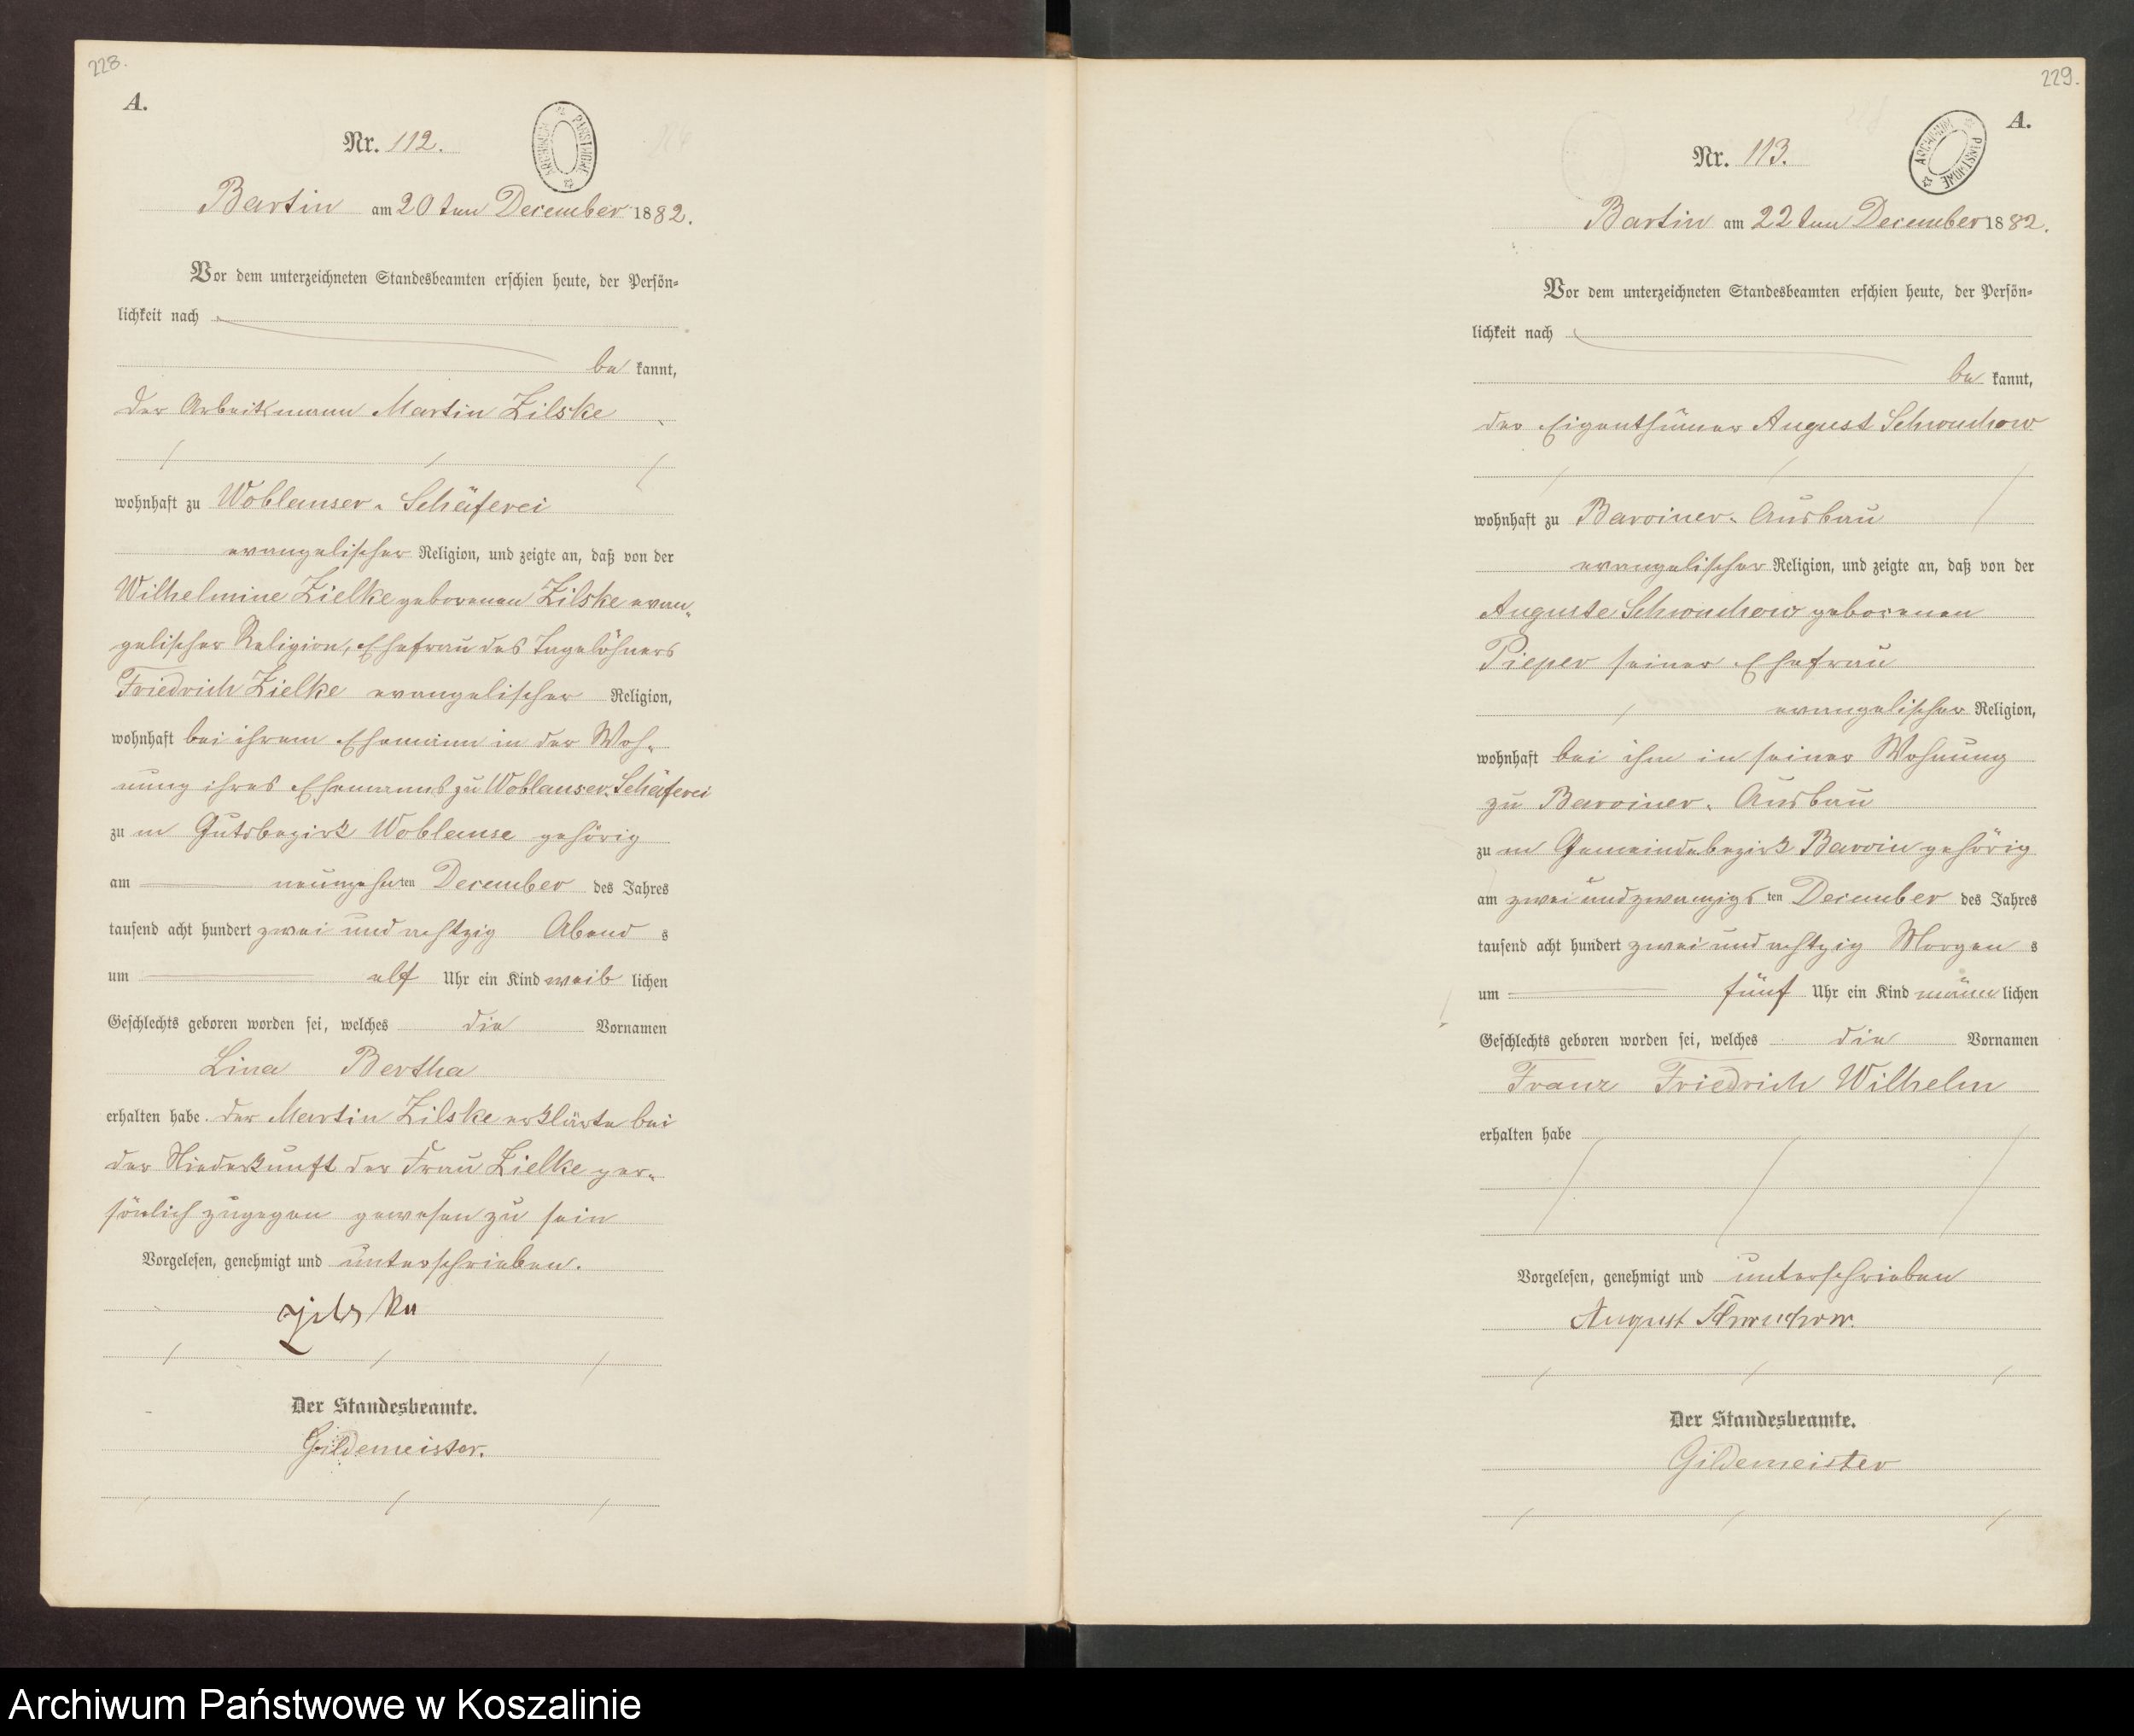 228.
A.
Nr. 112.
ARCHIWUM PAŃSTWOWE
Bartin am 20ten December 1882.
Vor dem unterzeichneten Standesbeamten erschien heute, der Persön-
lichkeit nach
be kannt,
der Arbeitsmann Martin Zilske
wohnhaft zu Woblanser-Schäferei
evangelischer Religion, und zeigte an, daß von der
Wilhelmine Zielke geborenen Zilske evan-
gelischer Religion, Ehefrau des Tagelöhners
Friedrich Zielke evangelischer Religion,
wohnhaft bei ihrem Ehemann in der Woh-
nung ihres Ehemanns zu Woblanser-Schäferei
zu m Gutsbezirk Woblanse gehörig
am neunzehnten December des Jahres
tausend acht hundert zwei und achtzig Abend s
um elf Uhr ein Kind weib lichen
Geschlechts geboren worden sei, welches die Vornamen
Lina Bertha
erhalten habe. Der Martin Zilske erklärte bei
der Niederkunft der Frau Zielke per-
sönlich zugegen gewesen zu sein
Vorgelesen, genehmigt und unterschrieben.
Zilske
Der Standesbeamte.
Gildemeister.
229.
A.
Nr. 113.
ARCHIWUM PAŃSTWOWE
Bartin am 22ten December 1882.
Vor dem unterzeichneten Standesbeamten erschien heute, der Persön-
lichkeit nach
be kannt,
der Eigenthümer August Schwuchow
wohnhaft zu Barviner-Ausbau
evangelischer Religion, und zeigte an, daß von der
Auguste Schwuchow geborenen
Pieper seiner Ehefrau
evangelischer Religion,
wohnhaft bei ihm in seiner Wohnung
zu Barviner-Ausbau
zu m Gemeindebezirk Barvin gehörig
am zwei und zwanzigsten December des Jahres
tausend acht hundert zwei und achtzig Morgen s
um fünf Uhr ein Kind männ lichen
Geschlechts geboren worden sei, welches die Vornamen
Franz Friedrich Wilhelm
erhalten habe
Vorgelesen, genehmigt und unterschrieben
August Schwuchow.
Der Standesbeamte.
Gildemeister
Archiwum Państwowe w Koszalinie